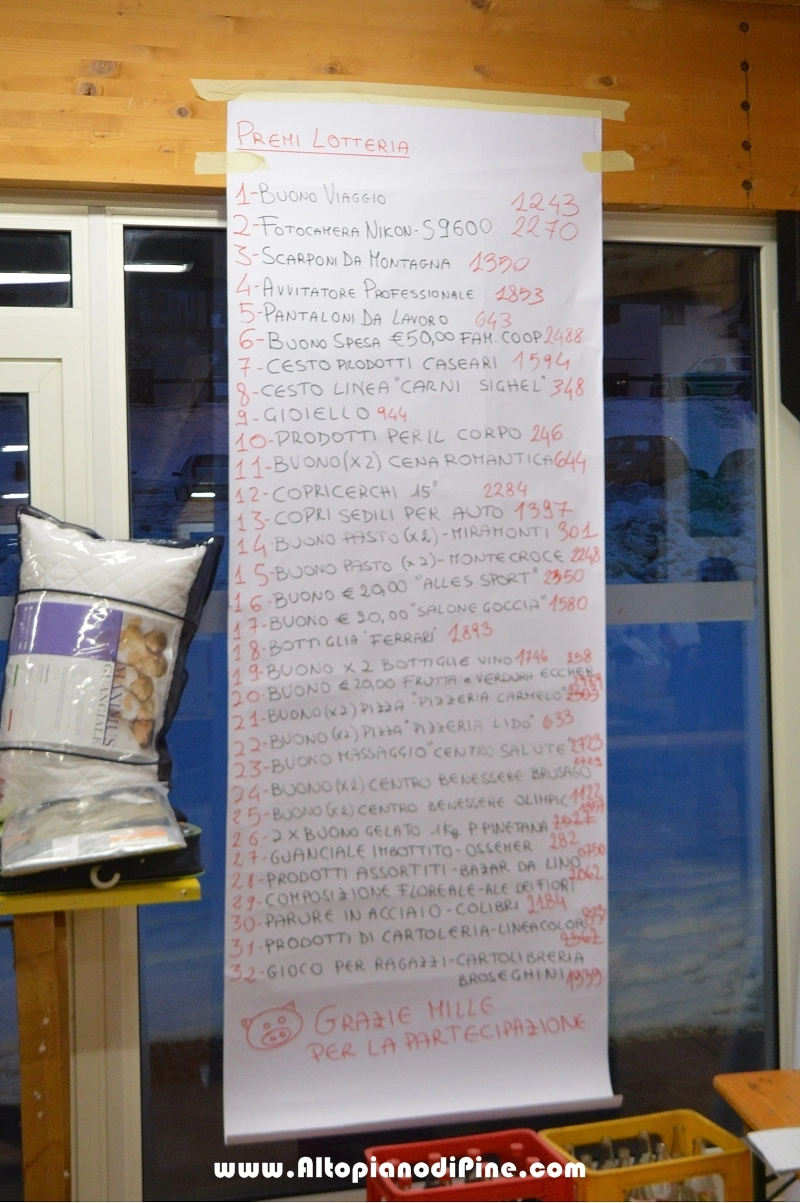 PREMI LOTTERIA
1-BUONO VIAGGIO 1243
2-FOTOCAMERA NIKON-S9600 2270
3-SCARPONI DA MONTAGNA 1350
4-AVVITATORE PROFESSIONALE 1853
5-PANTALONI DA LAVORO 643
6-BUONO SPESA €50,00 FAM. COOP 2488
7-CESTO PRODOTTI CASEARI 1594
8-CESTO LINEA "CARNI SIGHEL" 348
9-GIOIELLO 944
10-PRODOTTI PER IL CORPO 246
11-BUONO (X2) CENA ROMANTICA 644
12-COPRICERCHI 15" 2284
13-COPRI SEDILI PER AUTO 1397
14-BUONO PASTO (x2)-MIRAMONTI 301
15-BUONO PASTO (x2)-MONTECROCE 2248
16-BUONO € 20,00 "ALLES SPORT" 2350
17-BUONO € 20,00 "SALONE GOCCIA" 1580
18-BOTTIGLIA "FERRARI" 1893
19-BUONO X 2 BOTTIGLIE VINO 1746 258
20-BUONO €20,00 FRUTTA E VERDURA ECCHER
21-BUONO (x2) PIZZA "PIZZERIA CARMELO"
22-BUONO (x2) PIZZA "PIZZERIA LIDO" 633
23-BUONO MASSAGGIO "CENTRO SALUTE" 2723
24-BUONO (x2) CENTRO BENESSERE BRUSAGO
25-BUONO (x2) CENTRO BENESSERE OLIMPIC 1122
26-2 X BUONO GELATO 1Kg P. PINETANA
27-GUANCIALE IMBOTTITO-OSSEMER 282
28-PRODOTTI ASSORTITI-BAZAR DA LINO
29-COMPOSIZIONE FLOREALE-ALE DEI FIORI 2062
30-PARURE IN ACCIAIO-COLIBRI 2184
31-PRODOTTI DI CARTOLERIA-LINEACOLOR
32-GIOCO PER RAGAZZI-CARTOLIBRERIA
BROSEGHINI 1939
GRAZIE MILLE
PER LA PARTECIPAZIONE
GUANCIALE
www.AltopianodiPine.com